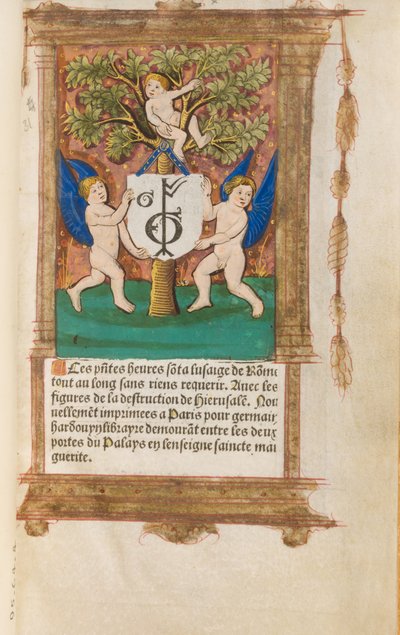 Ces pñtes heures sõt a lusaige de Rõme
tout au long sans riens requerir. Avec les
figures de la destruction de Hierusalẽ. Nou
uellemẽt imprimees a Paris pour germain
hardouyn librayre demourãt entre les deux
portes du Palays en lenseigne saincte mar
guerite.